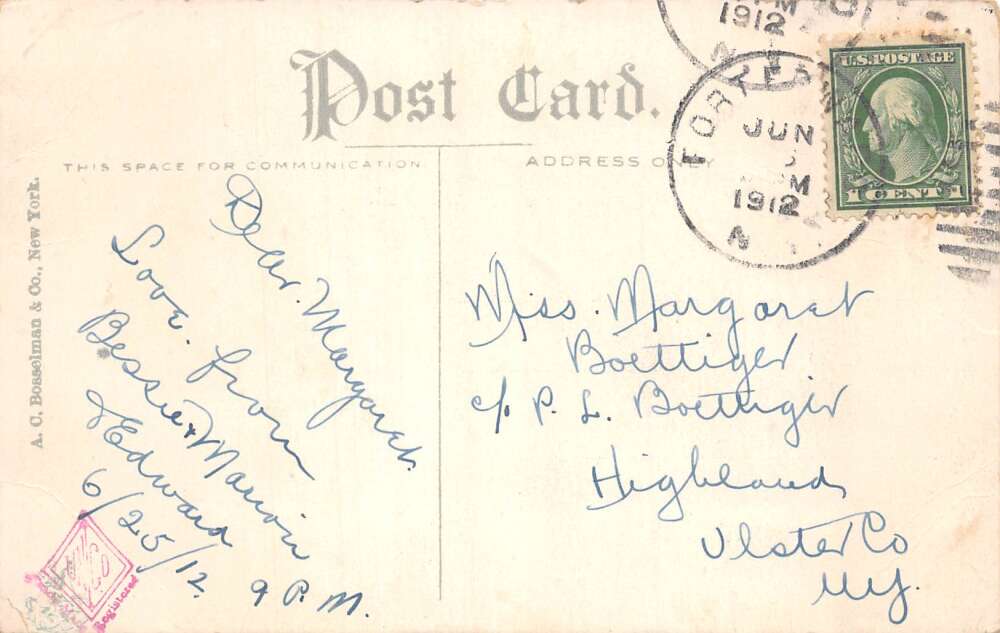 Post Card.
THIS SPACE FOR COMMUNICATION
ADDRESS ONLY
A. C. Bosselman & Co., New York.
PM
1912
FORT
N
JUN
PM
1912
U.S. POSTAGE
1 CENT 1
Dear. Margaret.
Love. from
Bessie & Marion
& Edward
6/25/12. 9 P. M.
Miss. Margaret
Boettiger
c/o P. L. Boettiger
Highland
Ulster Co
NY.
Registered